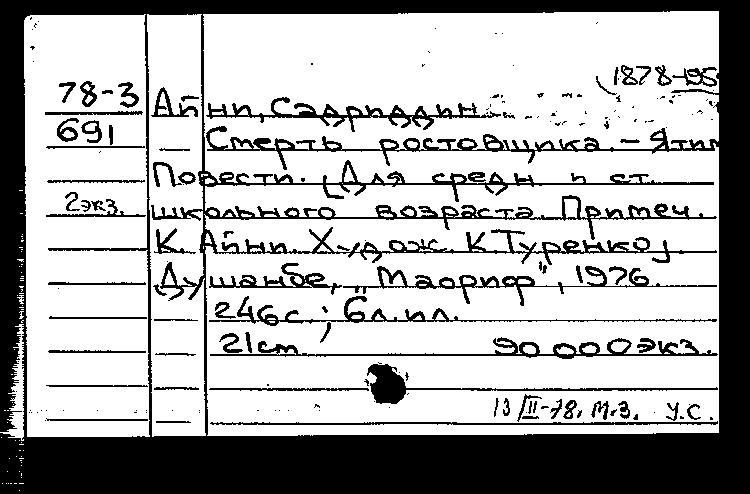 (1878-195
78-3 Айни, Садриддин.
691 — Смерть ростовщика. – Ятим
Повести. [Для средн и ст.
2экз. школьного возраста. Примеч.
К. Айни. Худож. К Туренко].
Душанбе, „Маориф", 1976.
246с.; 6л.ил.
21см. 90 000экз.
13/II-78. М.З. У.С.